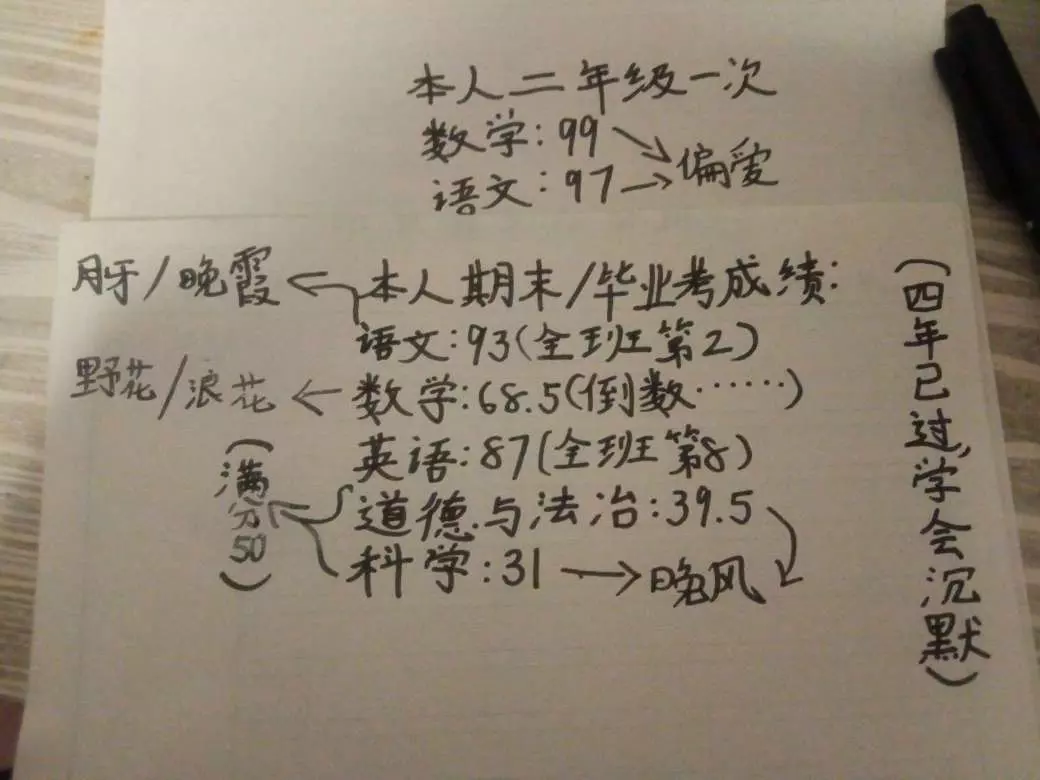 本人二年级一次
数学:99
语文:97
偏爱
月牙/晚霞
本人期末/毕业考成绩:
语文:93(全班第2)
野花/浪花
数学:68.5(倒数……)
英语:87(全班第8)
(满分50)
道德与法治:39.5
科学:31
晚风
(四年已过,学会沉默)